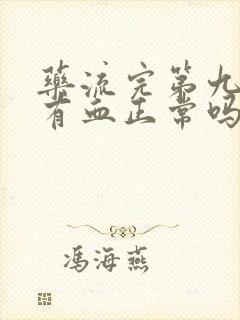 藥流完第九
有血正常嗎
馮海燕